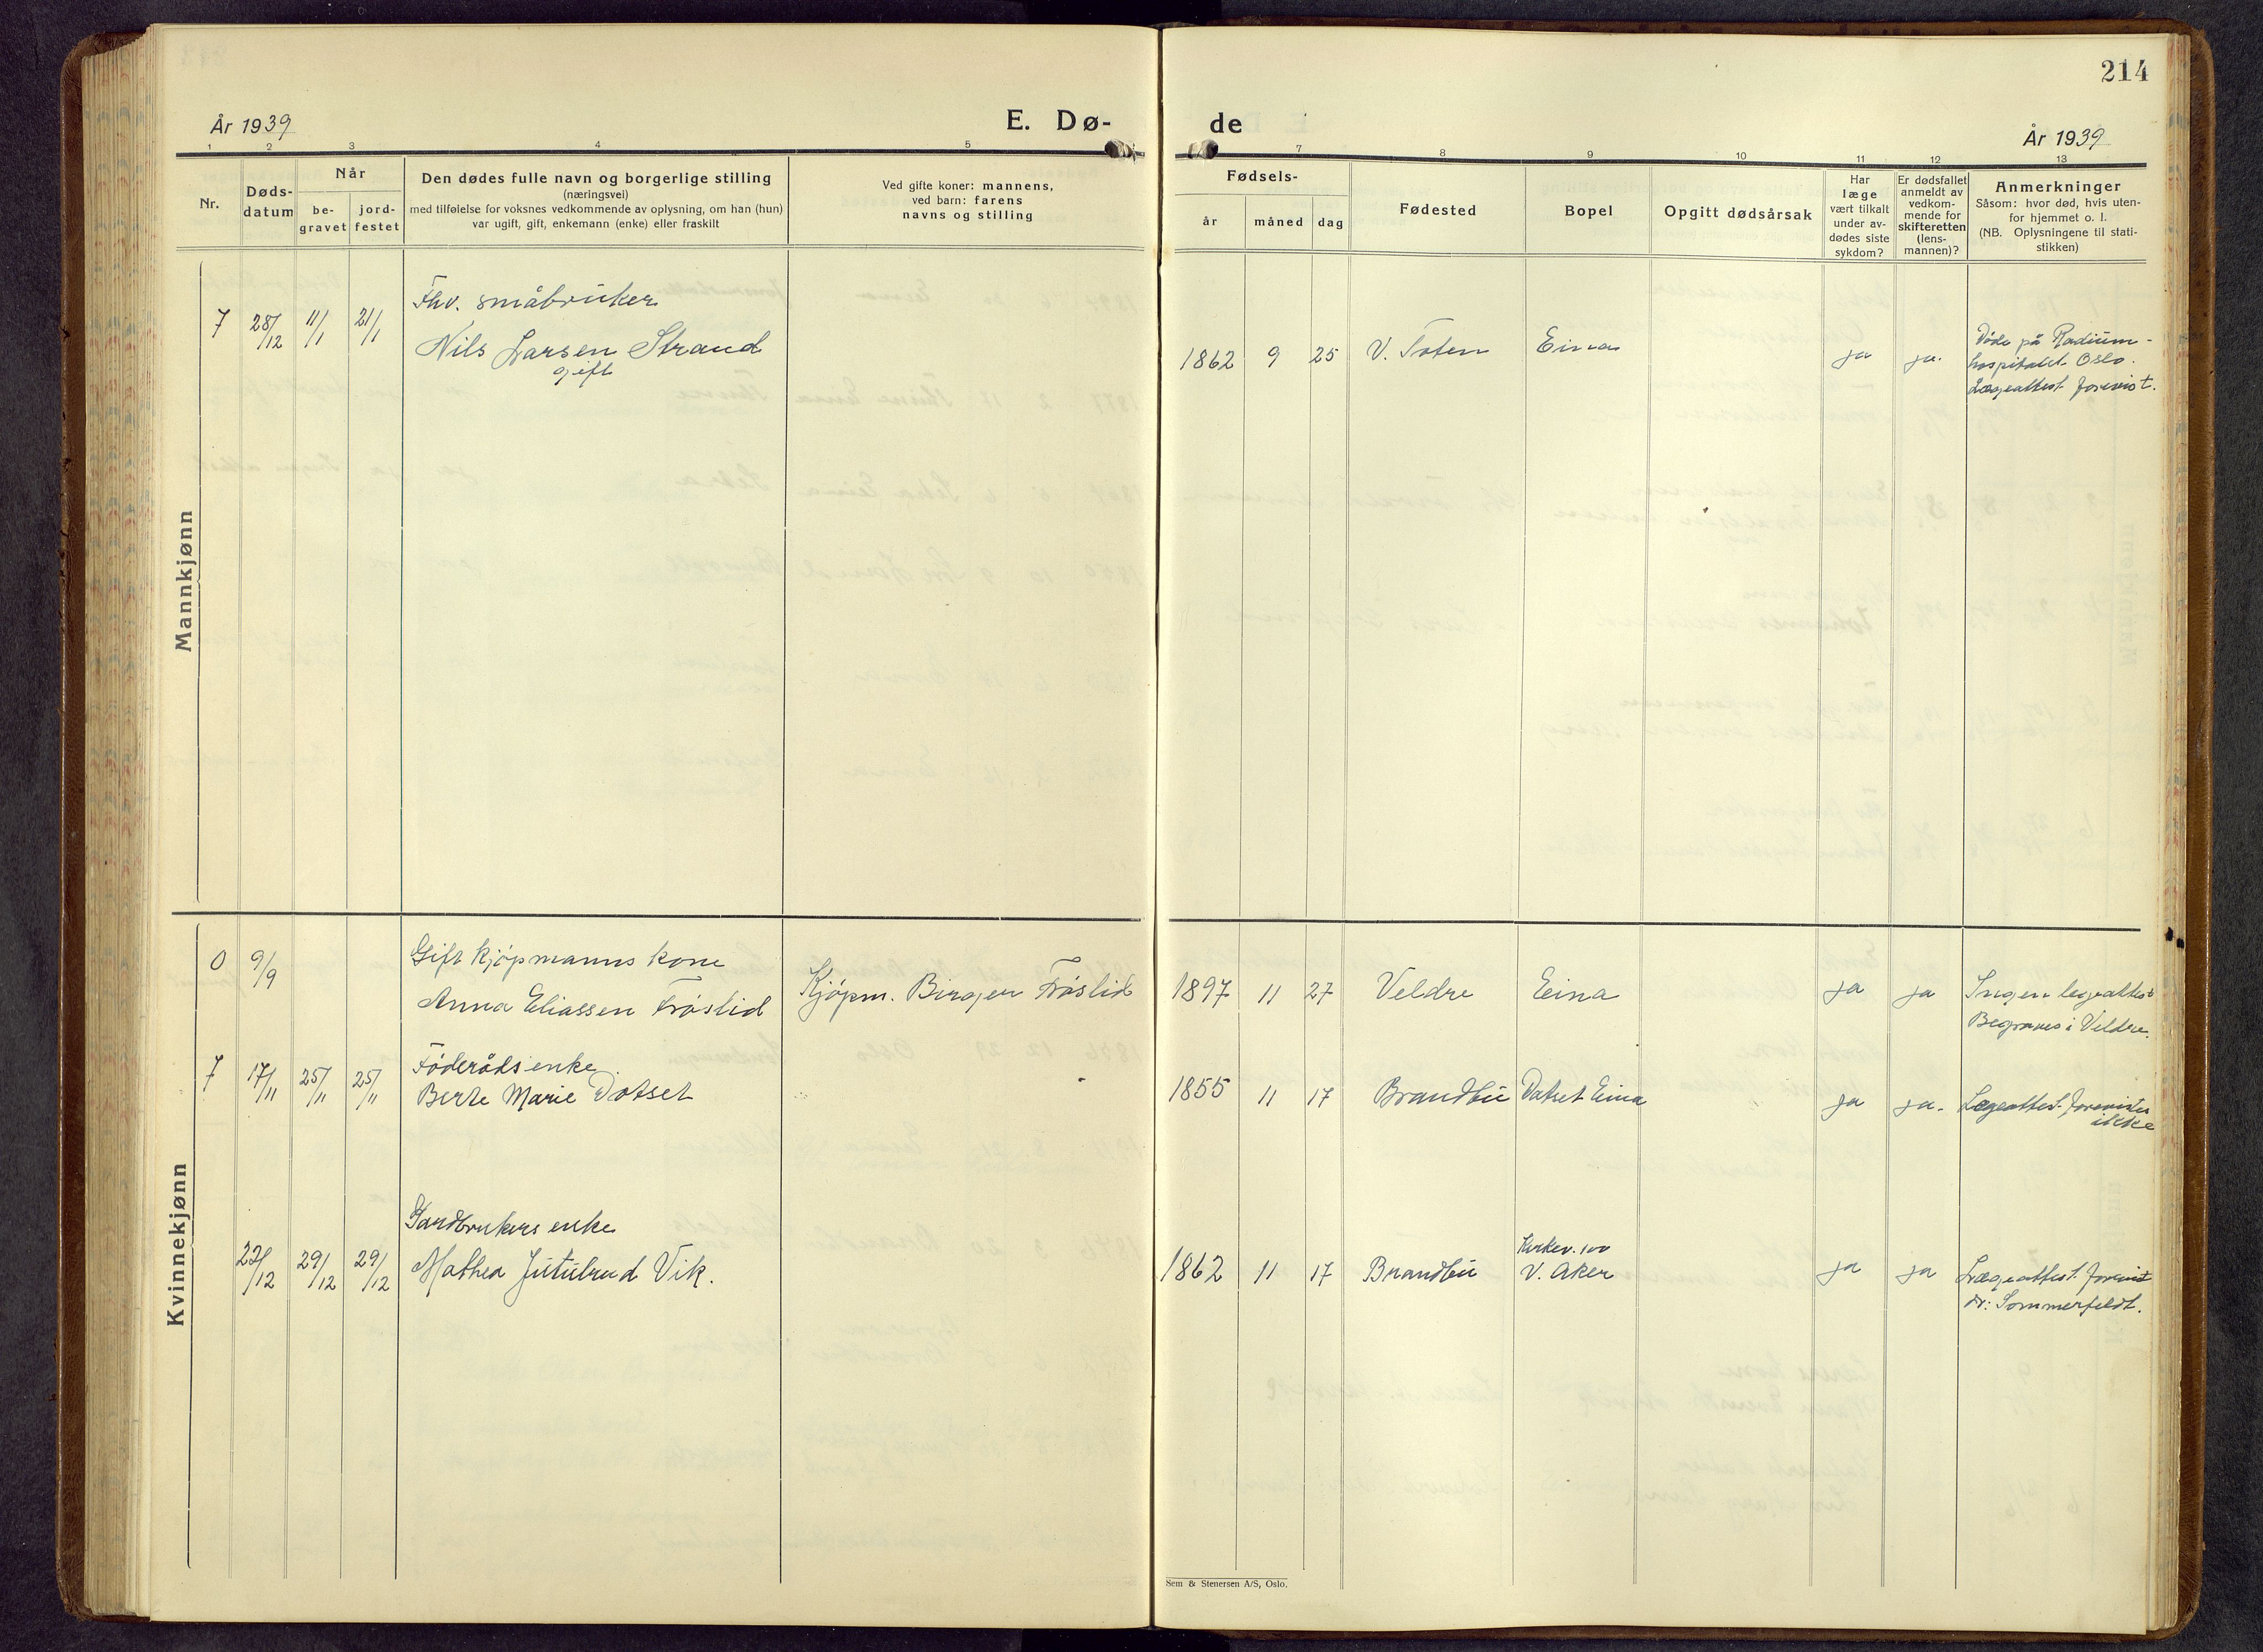 214
År 1939
E. Dø-
de
År 1939
1 2 3 4 5
7 8 9 10 11 12 13
Nr.
Døds-
datum
Når
be-
gravet
jord-
festet
Den dødes fulle navn og borgerlige stilling
(næringsvei)
med tilføielse for voksnes vedkommende av oplysning, om han (hun)
var ugift, gift, enkemann (enke) eller fraskilt
Ved gifte koner: mannens,
ved barn: farens
navns og stilling
Fødsels-
år
måned
dag
Fødested
Bopel
Opgitt dødsårsak
Har
læge
vært tilkalt
under av-
dødes siste
sykdom?
Er dødsfallet
anmeldt av
vedkom-
mende for
skifteretten
(lens-
mannen)?
Anmerkninger
Såsom: hvor død, hvis uten-
for hjemmet o. l.
(NB. Oplysningene til stati-
stikken)
Mannkjønn
Fhv. småbruker
7 28/12 11/1 21/1 Nils Larsen Strand
gift
1862 9 25 V. Toten Eina ja ja.
Døde på Radium-
hospitalet Oslo.
Lægeattest forevist.
Kvinnekjønn
Gift kjøpmanns kone
0 9/9 Anna Eliassen Frøslid Kjøpm. Birger Frøslid
1897 11 27 Veldre Eina ja ja Ingen legeattest
Begraves i Veldre.
Føderådsenke
7 17/11 25/11 25/11 Berte Marie Dotset
1855 11 17 Brandbu Dotset Eina ja ja. Lægeattest forevistes
ikke
Gardbrukers enke
22/12 29/12 29/12 Mathea Jutulrud Vik.
Kirkev. 100
1862 11 17 Brandbu V. Aker ja ja Lægeattest forevist
dr: Sommerfeldt.
Sem & Stenersen A/S, Oslo.